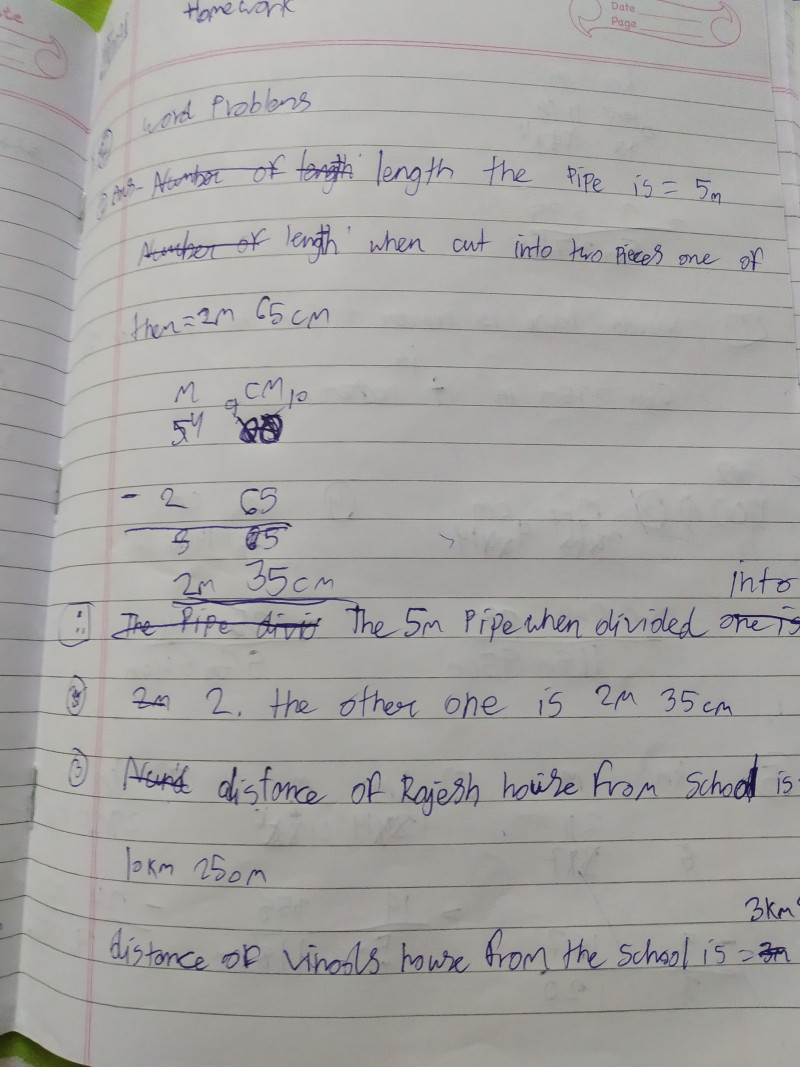 Homework
Date
Page
Word Problems
Ans- Number of length length the Pipe is = 5m
Number of length when cut into two Pieces one of
then = 2m 65cm
M CM
5 4 9 10
- 2 65
3 65
2m 35cm
into
∴ The Pipe divi The 5m Pipe when divided one is
2m 2. the other one is 2m 35cm
③ distance of Rajesh house from School is
10km 250m
3km
distance of Vinods house from the School is = 3m